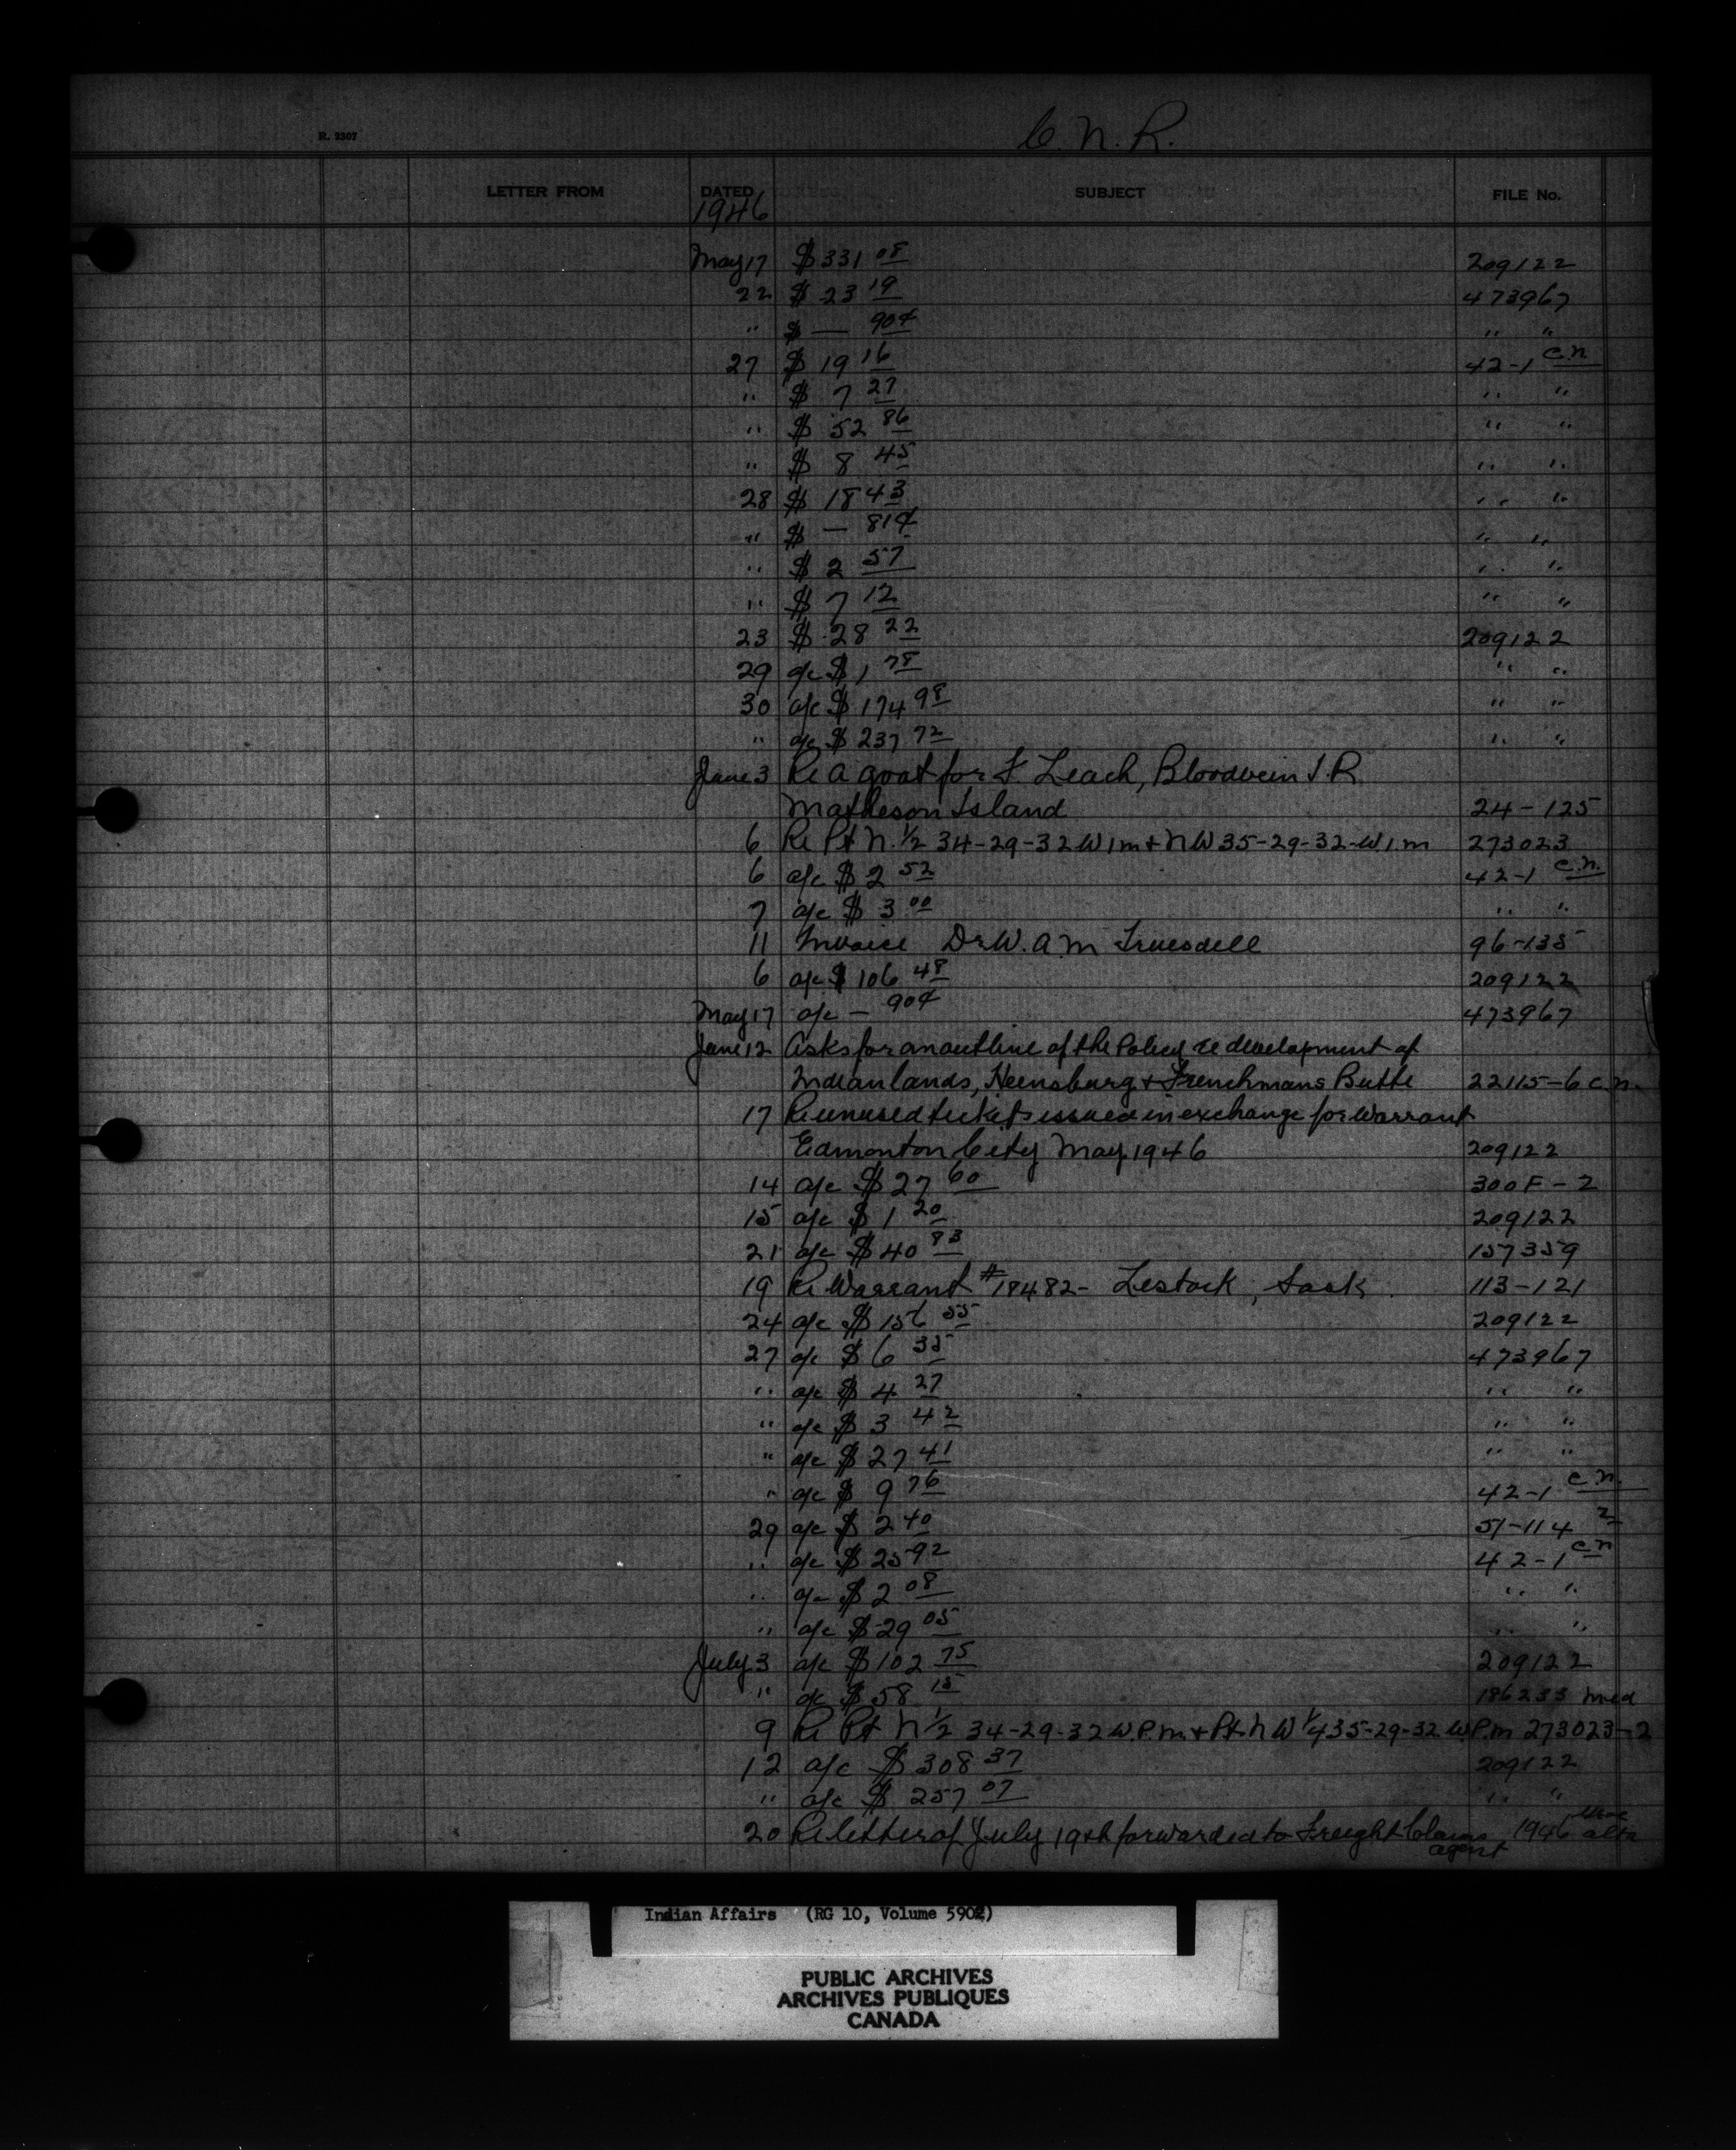 C. N. R.
R. 2307
LETTER FROM DATED SUBJECT FILE No.
1946
May 17 $ 331 08 209122
22 $ 23 19 473967
" $ — 90¢ " "
27 $ 19 16 42-1 C.N.
" $ 7 27 " "
" $ 52 86 " "
" $ 8 45 " "
28 $ 18 43 " "
" $ — 81¢ " "
" $ 2 57 " "
" $ 7 12 " "
23 $ 28 22 209122
29 a/c $ 1 78 " "
30 a/c $ 174 98 " "
" a/c $ 237 72 " "
June 3 Re a goat for F. Leach, Bloodvein I.R.
Matheson Island 24-125
6 Re Pt N. 1/2 34-29-32 W1m + NW 35-29-32-W.1.m 273023
6 a/c $ 2 52 42-1 C.N.
7 a/c $ 3 00 " "
11 Invoice Dr W. A. M Truesdell 96-135
6 a/c $ 106 48 209122
May 17 a/c — 90¢ 473967
June 12 Asks for an outline of the Policy re development of
Indian lands, Heinsburg + Frenchmans Butte 22115-6 C.N.
17 Re unused tickets issued in exchange for Warrant
Edmonton City May 1946 209122
14 a/c $ 27 60 300F-2
15 a/c $ 1 20 209122
21 a/c $ 40 83 157359
19 Re Warrant #18482- Lestock, Sask. 113-121
24 a/c $ 156 55 209122
27 a/c $ 6 35 473967
" a/c $ 4 27 " "
" a/c $ 3 42 " "
" a/c $ 27 41 " "
" a/c $ 9 76 42-1 C.N.
29 a/c $ 2 40 51-114 2
" a/c $ 25 92 42-1 C.N
" a/c $ 2 08 " "
" a/c $ 29 05 " "
July 3 a/c $ 102 75 209122
" a/c $ 58 15 186233 Med
9 Re Pt N 1/2 34-29-32 W.P.m. + Pt. N W 1/4 35-29-32 W.P.m 273023-2
12 a/c $ 308 37 209122
" a/c $ 257 07 " "
20 Re letter of July 19th forwarded to Freight Claims 1946 alta
agent
Indian Affairs (RG 10, Volume 5902)
PUBLIC ARCHIVES
ARCHIVES PUBLIQUES
CANADA